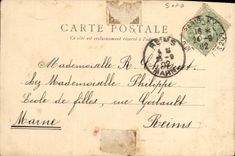 CARTE POSTALE
Ce côté est exclusivement réservé à l'adresse
REIMS
02
MARNE
02
Mademoiselle R.
chez Mademoiselle Philippe
Ecole de filles, rue Gerbault
Marne Reims